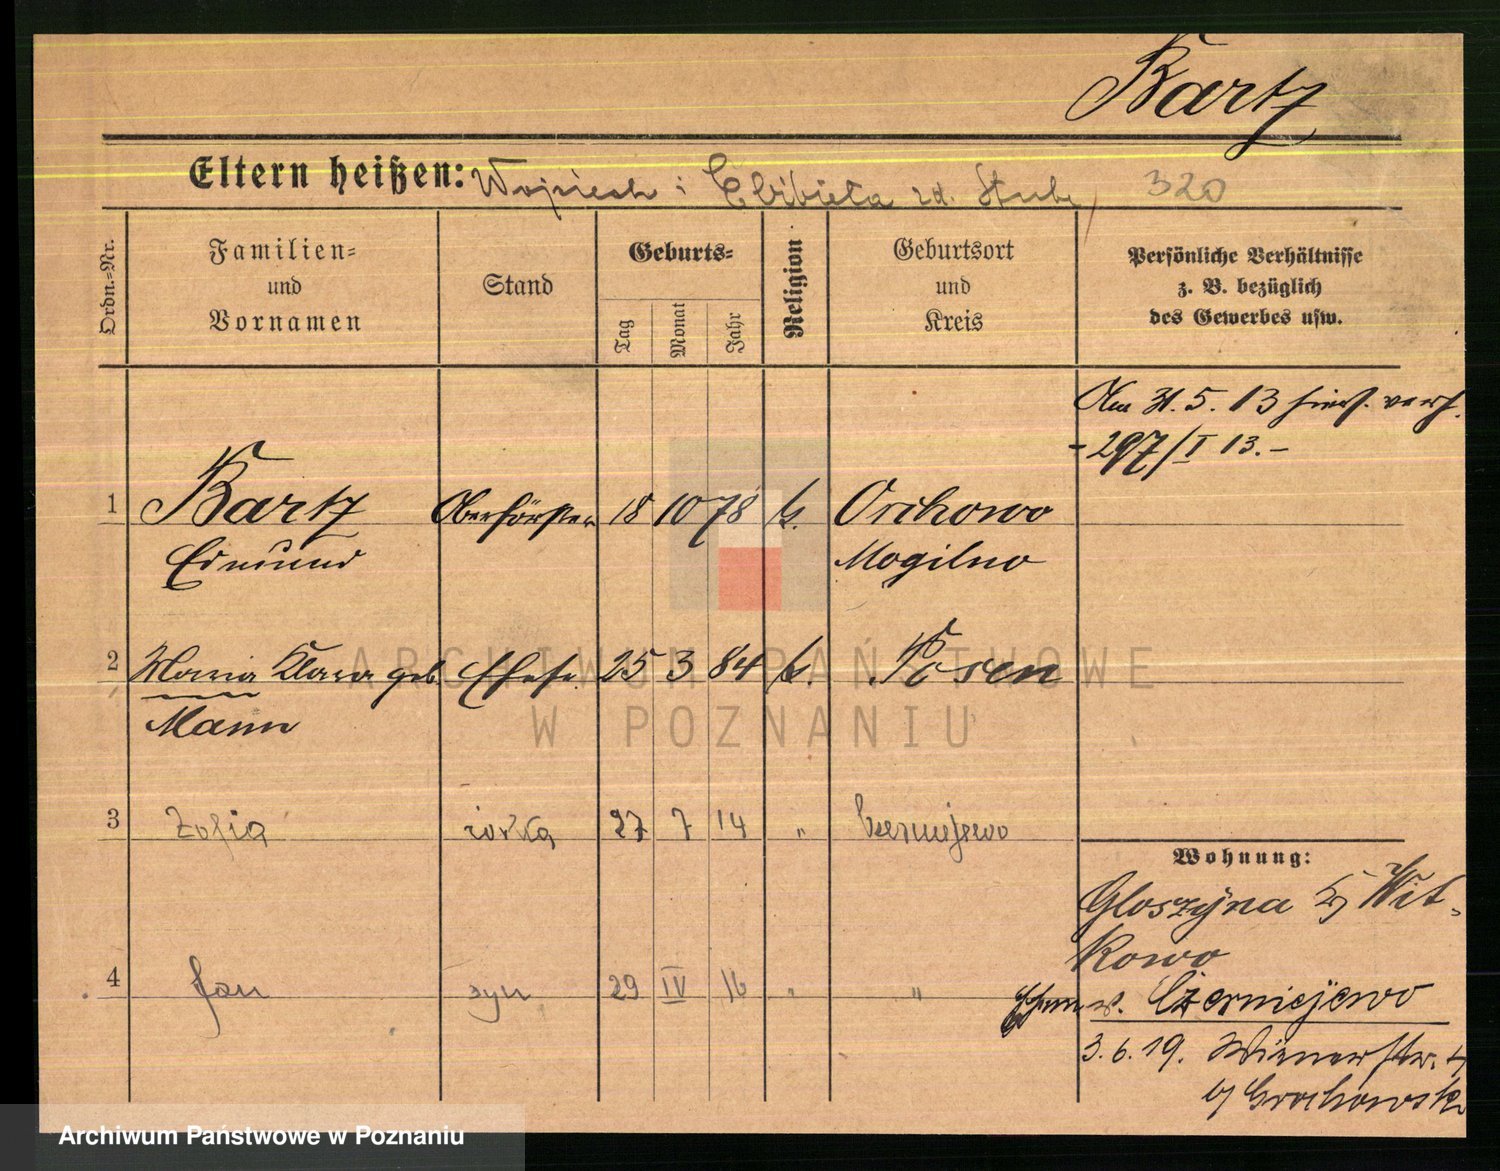 Bartz
Eltern heißen: Wojciech i Elżbieta zd. Stube 320
Ordn.=Nr.
Familien=
und
Vornamen
Stand
Geburts=
Tag
Monat
Jahr
Religion
Geburtsort
und
Kreis
Persönliche Verhältnisse
z. B. bezüglich
des Gewerbes usw.
Am 31. 5. 13 hies. verh.
- 297/I 13. -
1 Bartz Oberförster 18 10 78 k. Orchowo
Edmund Mogilno
2 Maria Klara geb. Ehefr. 25 3 84 k. Posen
Mann
3 Zofia córka 27 7 14 " Czerniejewo
Wohnung:
Gloszyna b/ Wit-
kowo
4 Jan syn 29 IV 16 " "
v. Czerniejewo
3. 6. 19. Wienerstr.
b/ Grochowski
ARCHIWUM PAŃSTWOWE
W POZNANIU
Archiwum Państwowe w Poznaniu